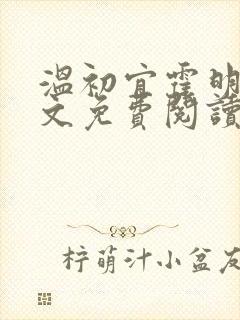 溫初宜霆明
文免費閱讀
柠萌汁小盆友